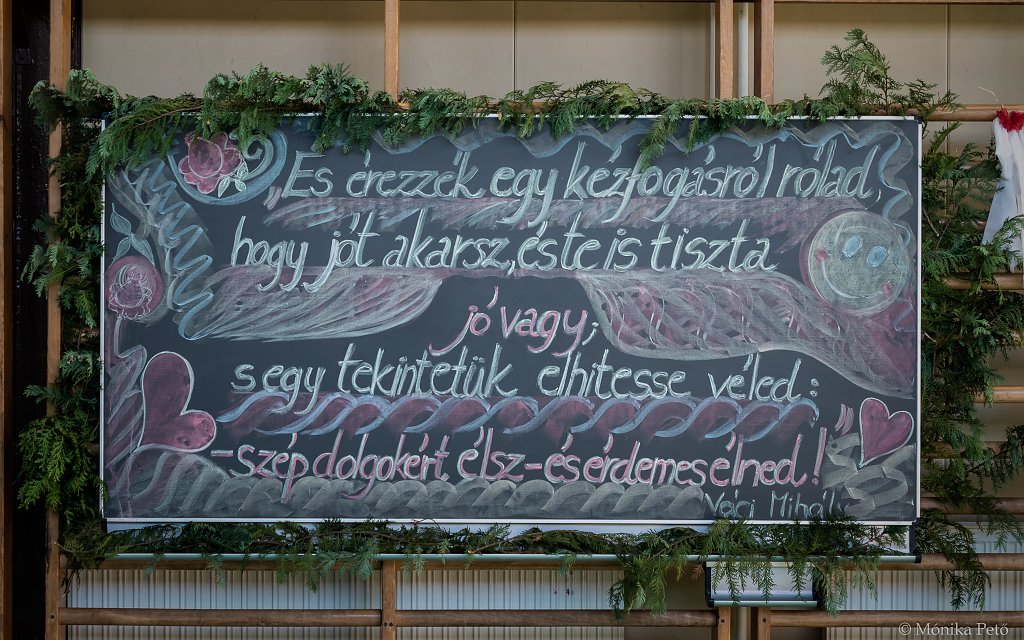 „És érezzék egy kézfogásról rólad,
hogy jót akarsz, és te is tiszta
jó vagy;
s egy tekintetük elhitesse véled:
- szép dolgokért élsz - és érdemes élned!
Váci Mihály
© Mónika Pető